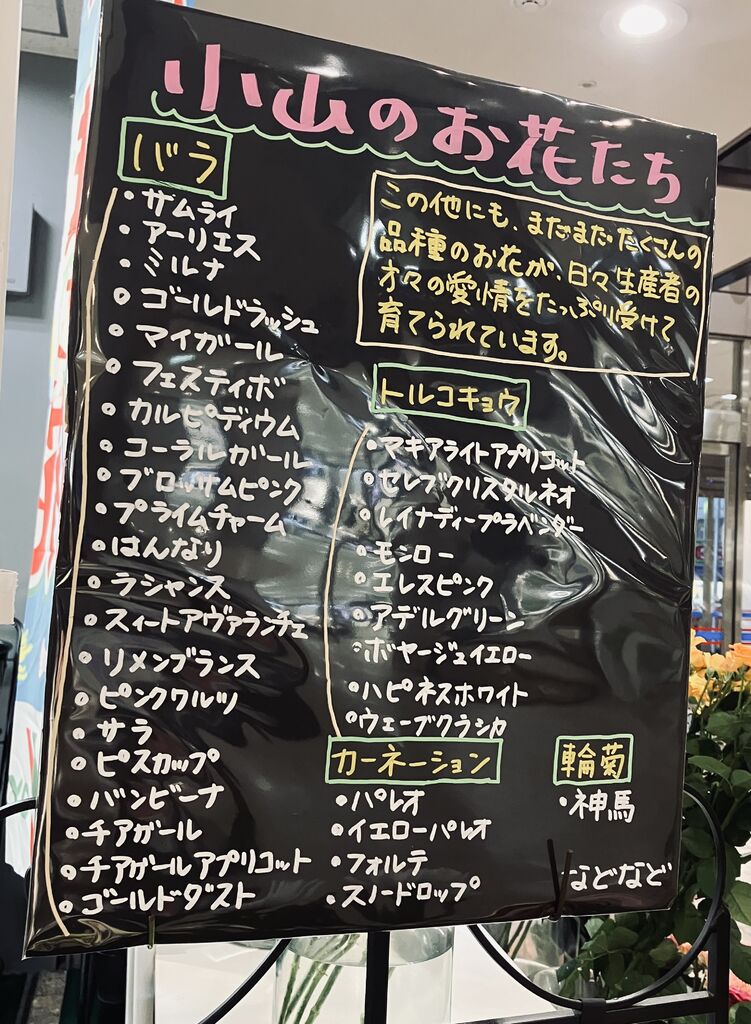 小山のお花たち
バラ
・サムライ
・アーリエス
・ミルナ
・ゴールドラッシュ
・マイガール
・フェスティボ
・カルピディウム
・コーラルガール
・ブロッサムピンク
・プライムチャーム
・はんなり
・ラシャンス
・スィートアヴァランチェ
・リメンブランス
・ピンクワルツ
・サラ
・ピスカップ
・バンビーナ
・チアガール
・チアガールアプリコット
・ゴールドダスト
この他にも、まだまだたくさんの
品種のお花が、日々生産者の
方々の愛情をたっぷり受けて
育てられています。
トルコキョウ
・マキアライトアプリコット
・セレブクリスタルネオ
・レイナディープラベンダー
・モンロー
・エレスピンク
・アデルグリーン
・ボヤージュイエロー
・ハピネスホワイト
・ウェーブクラシカ
カーネーション
・パレオ
・イエローパレオ
・フォルテ
・スノードロップ
輪菊
・神馬
などなど